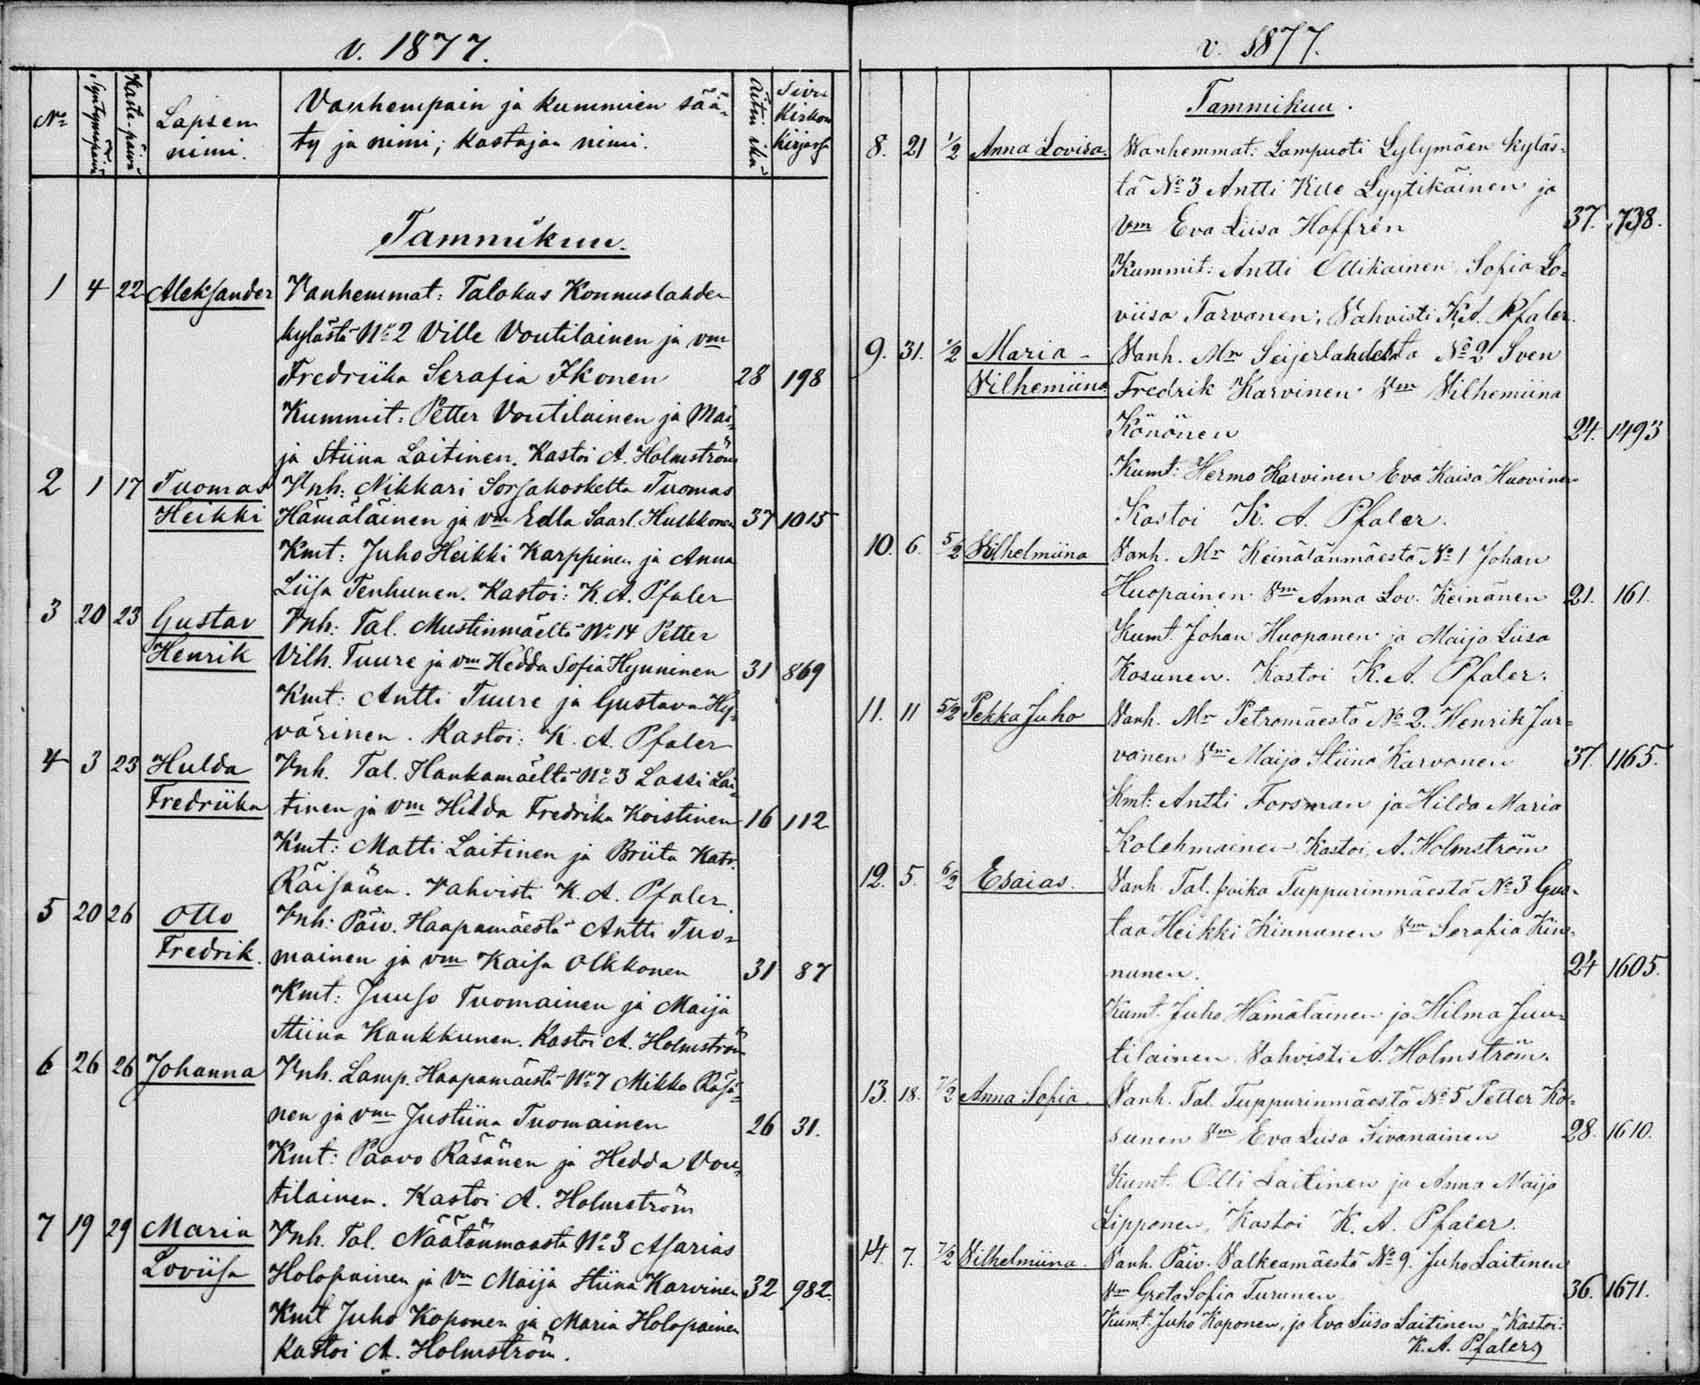 v. 1877.
No
Syntymäpäivä
Kaste-päivä
Lapsen
nimi.
Vanhempain ja kummien sää-
ty ja nimi; kastajan nimi.
Äitin ikä
Sivu
Kirkon
kirjassa
Tammikuu.
1 4 22 Aleksander Vanhemmat: Talokas Konnuslahden
kylästä No 2 Ville Voutilainen ja vm
Fredriika Serafia Ikonen 28 198
Kummit: Petter Voutilainen ja Mai-
ja Stiina Laitinen. Kastoi A. Holmström
2 1 17 Tuomas Vnh: Nikkari Sorsakoskelta Tuomas
Heikki Hämäläinen ja vm Edla Saarl. Hulkkonen 37 1015
Kmt: Juho Heikki Karppinen ja Anna
Liisa Tenhunen. Kastoi: K. A. Pfaler
3 20 23 Gustav Vnh: Tal. Mustinmäeltä No 14 Petter
Henrik Vilh. Tuure ja vm Hedda Sofia Hynninen 31 869
Kmt: Antti Tuure ja Gustava Hy-
värinen. Kastoi: K. A. Pfaler
4 3 23 Hulda Vnh. Tal. Haukamäeltä No 3 Lassi Lai-
Fredriika tinen ja vm Hilda Fredrika Koistinen 16 112
Kmt: Matti Laitinen ja Briita Katr.
Räisänen. Vahvisti K. A. Pfaler.
5 20 26 Otto Vnh. Päiv. Haapamäestä Antti Tuo-
Fredrik. mainen ja vm Kaisa Olkkonen 31 87
Kmt: Juuso Tuomainen ja Maija
Stiina Kaukkunen. Kastoi A. Holmström
6 26 26 Johanna Vnh. Lamp. Haapamäestä No 7 Mikko Räsä-
nen ja vm Justiina Tuomainen 26 31.
Kmt: Paavo Räsänen ja Hedda Vou-
tilainen. Kastoi A. Holmström
7 19 29 Maria Vnh. Tal. Näätänmaasta No 3 Asarias
Loviisa Holopainen ja Vm Maija Stiina Karvinen 32 982.
Kmt Juho Koponen ja Maria Holopainen
Kastoi A. Holmström.
v. 1877.
Tammikuu.
8. 21 1/2 Anna Lovisa. Vanhemmat: Lampuoti Lylymäen kyläs-
tä No 3 Antti Kalle Lyytikäinen ja
Vm Eva Liisa Hoffrén 37. 738.
Kummit: Antti Ollikainen Sofia Lo-
viisa Tarvanen; Vahvisti K. A. Pfaler.
9. 31. 1/2 Maria - Vanh. Mr Seijerlahdelta No 2 Sven
Vilhemiina Fredrik Karvinen Vm Vilhemiina
Könönen 24. 1493
Kumt: Hermo Karvinen Eva Kaisa Huovinen
Kastoi K. A. Pfaler.
10. 6. 5/2 Vilhelmiina Vanh. Mr Keinälänmäestä No 1 Johan
Huopainen Vm Anna Lov. Keinänen 21. 161.
Kumt. Johan Huopanen ja Maija Liisa
Kosunen. Kastoi K. A. Pfaler.
11. 11 5/2 Pekka Juho Vanh. Mr Petromäestä No 2. Henrik Jur-
vanen Vm Maija Stiina Karvonen 37. 1165.
Kmt: Antti Forsman ja Hilda Maria
Kolehmainen Kastoi A. Holmström
12. 5. 6/2 Esaias. Vanh. Tal. poika Tuppurinmäestä No 3 Gus-
taa Heikki Kinnunen Vm Serafia Kin-
nunen. 24 1605.
Kumt. Juho Hämäläinen ja Hilma Juu-
tilainen. Vahvisti A. Holmström.
13. 18. 7/2 Anna Sofia. Vanh. Tal. Tuppurinmäestä No 5 Petter Ko-
sunen Vm Eva Liisa Tivanainen 28. 1610.
Kumt. Olli Laitinen ja Anna Maija
Lipponen, Kastoi K. A. Pfaler.
14. 7. 7/2 Vilhelmiina. Vanh. Päiv. Valkeamäestä No 9. Juho Laitinen
Vm Greta Sofia Turunen 36. 1671.
Kumt. Juho Koponen, ja Eva Liisa Laitinen, Kastoi:
K. A. Pfaler